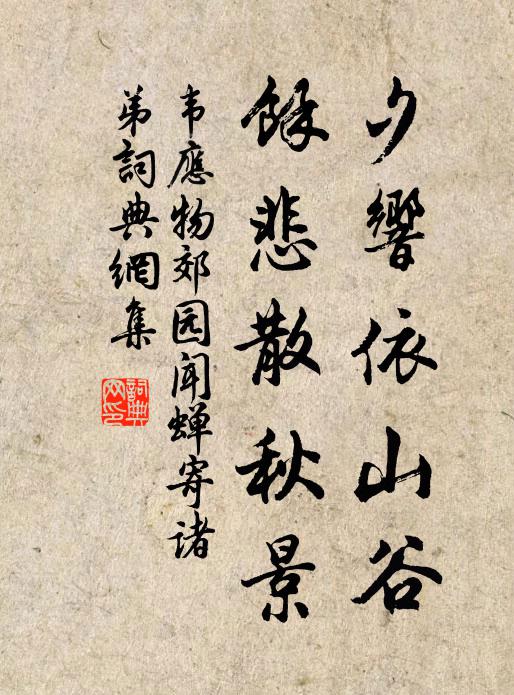 夕響依山谷
餘悲散秋景
韦應物郊园闻蝉寄諸
弟詞典網集
詞典
网印